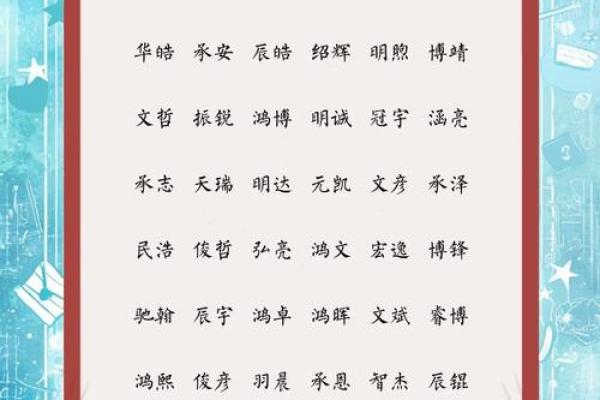 华皓 承安 辰皓 绍辉 明煦 博靖
文哲 振锐 鸿博 明诚 冠宇 涵亮
承志 天瑞 明达 元凯 文彦 承泽
民浩 俊哲 弘亮 鸿文 宏逸 博锋
驰翰 辰宇 鸿卓 鸿晖 文斌 睿博
鸿熙 俊彦 羽晨 承恩 智杰 辰锟